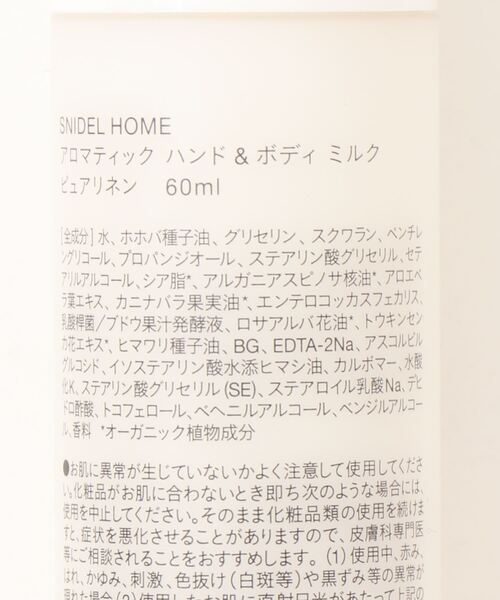 SNIDEL HOME
アロマティック ハンド & ボディ ミルク
ピュアリネン 60ml
[全成分] 水、ホホバ種子油、グリセリン、スクワラン、ペンチレ
ングリコール、プロパンジオール、ステアリン酸グリセリル、セテ
アリルアルコール、シア脂*、アルガニアスピノサ核油*、アロエベ
ラ葉エキス、カニナバラ果実油*、エンテロコッカスフェカリス、
乳酸桿菌/ブドウ果汁発酵液、ロサアルバ花油*、トウキンセン
カ花エキス*、ヒマワリ種子油、BG、EDTA-2Na、アスコルビル
グルコシド、イソステアリン酸水添ヒマシ油、カルボマー、水酸
化K、ステアリン酸グリセリル(SE)、ステアロイル乳酸Na、デヒ
ドロ酢酸、トコフェロール、ベヘニルアルコール、ベンジルアルコー
ル、香料 *オーガニック植物成分
●お肌に異常が生じていないかよく注意して使用してくださ
い。化粧品がお肌に合わないとき即ち次のような場合には、
使用を中止してください。そのまま化粧品類の使用を続けま
すと、症状を悪化させることがありますので、皮膚科専門医
等にご相談されることをおすすめします。(1)使用中、赤み、
はれ、かゆみ、刺激、色抜け(白斑等)や黒ずみ等の異常が
現れた場合(2)使用したお肌に直射日光があたって上記の